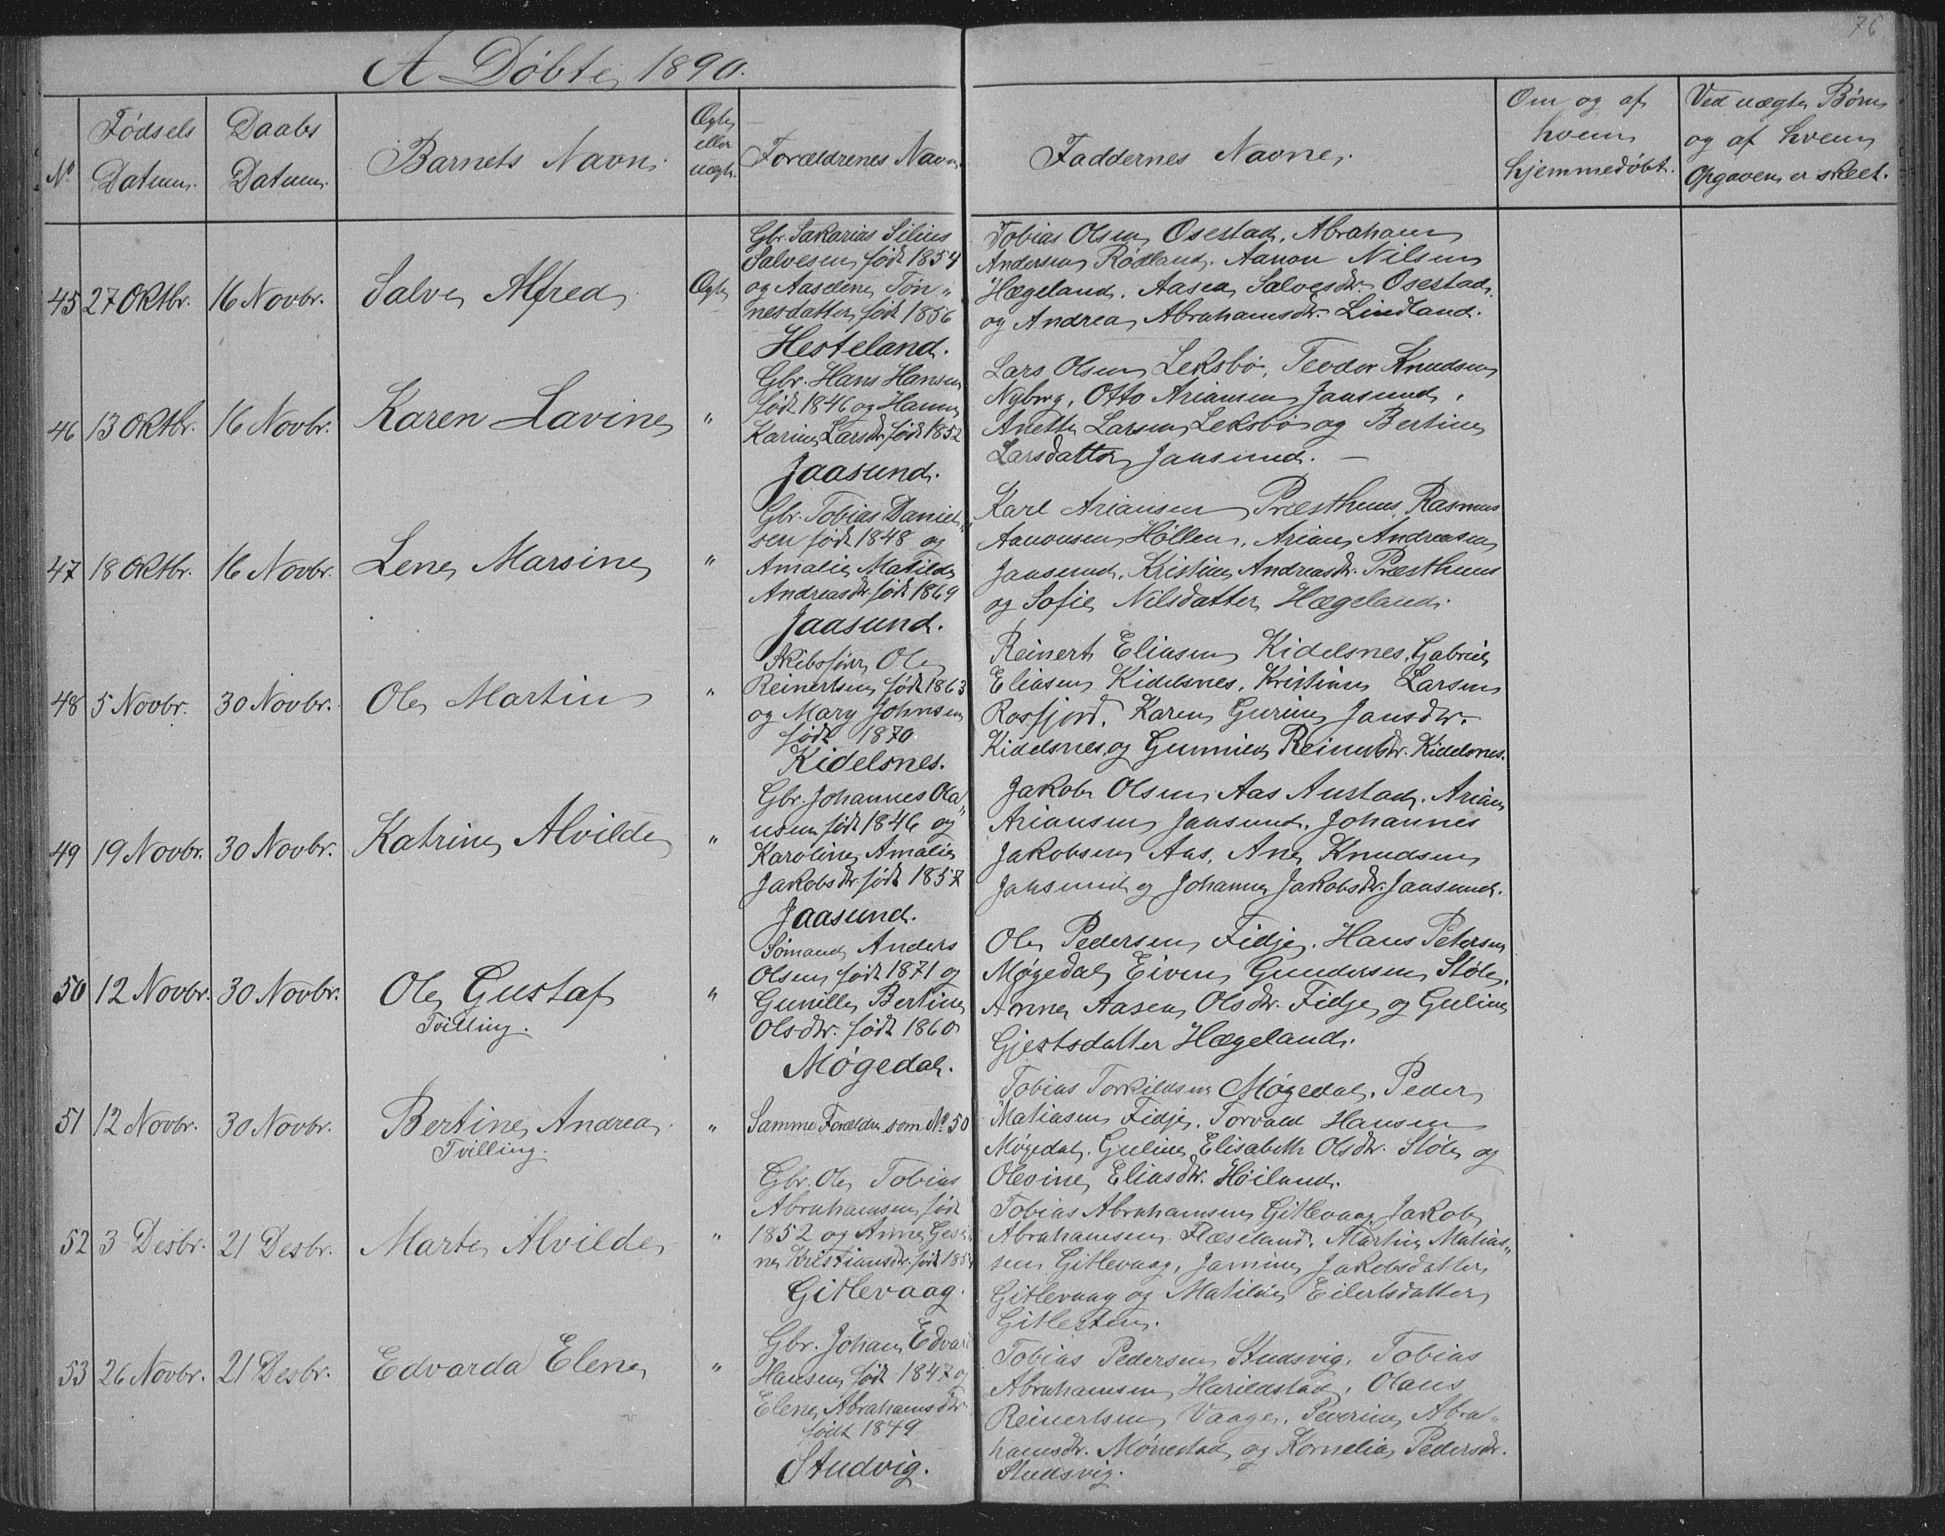 76
A Døbte 1890.
No
Fødsels Datum.
Daabs Datum.
Barnets Navn.
Ægte eller uægte.
Forældrenes Navn
Faddernes Navne.
Om og af hvem hjemmedøbt.
Ved uægte Børn og af hvem Opgaven er skeet.
45 27 Oktbr. 16 Novbr. Salve Alfred Ægte
Gbr. Sakarias Silius
Salvesen født 1854
og Aaseline Tøn„
nesdatter født 1856
Hesteland.
Tobias Olsen Osestad, Abraham
Andersen Rødland, Aanon Nilsen
Hægeland, Aasea Salvesdtr. Osestad
og Andrea Abrahamsdtr. Lindland.
46 13 Oktbr. 16 Novbr. Karen Lavine "
Gbr. Hans Hansen
født 1846 og Hanne
Karine Larsdtr. født 1852
Jaasund.
Lars Olsen Leksbø, Teodor Knudsen
Nyberg, Otto Ariansen Jaasund,
Anette Larsen Leksbø og Bertine
Larsdatter Jaasund. —
47 18 Oktbr. 16 Novbr. Lene Marsine "
Gbr. Tobias Daniel„
sen født 1848 og
Amalie Matilde
Andreasdtr. født 1869
Jaasund.
Karl Ariansen Præsthuus, Rasmus
Aanonsen Høllen, Arian Andreasen
Jaasund, Kristine Andreasdtr. Præsthuus
og Sofie Nilsdatter Hægeland.
48 5 Novbr. 30 Novbr. Ole Martin "
Skibsfører Ole
Reinertsen født 1863
og Mary Johnsen
født 1870
Kidelsnes.
Reinert Eliasen Kidelsnes, Gabriel
Eliasen Kidelsnes, Kristian Larsen
Rosfjord, Karen Gurine Jansdtr.
Kidelsnes og Gunnild Reinertsdtr. Kidelsnes.
49 19 Novbr. 30 Novbr. Katrine Alvilde "
Gbr. Johannes Ola„
usen født 1846 og
Karoline Amalie
Jakobsdtr. født 1857
Jaasund.
Jakob Olsen Aas Austad, Arian
Ariansen Jaasund, Johannes
Jakobsen Aas, Ane Knudsen
Jaasund og Johanne Jakobsdtr. Jaasund.
50 12 Novbr. 30 Novbr. Ole Gustaf "
Tvilling.
Sømand Anders
Olsen født 1871 og
Gunille Bertine
Olsdtr. født 1860
Møgedal.
Ole Pedersen Fidje, Hans Petersen
Møgedal, Eiven Gundersen Støle,
Anne Aasen Olsdtr. Fidje og Guline
Gjestsdatter Hægeland.
51 12 Novbr. 30 Novbr. Bertine Andrea. "
Tvilling.
Samme Forældre som No 50
Tobias Torkildsen Møgedal, Peder
Matiasen Fidje, Torvald Hansen
Møgedal, Guline Elisabeth Olsdtr. Støle og
Olevine Eliasdtr. Høiland.
52 3 Desbr. 21 Desbr. Marte Alvilde "
Gbr. Ole Tobias
Abrahamsen født
1852 og Anne Gesi
ne Kristiansdtr. født 185
Gitlevaag.
Tobias Abrahamsen Gitlevaag, Jakob
Abrahamsen Flæseland, Martin Matias„
sen Gitlevaag, Jamine Jakobsdatter
Gitlevaag og Matilde Eilertsdatter
53 26 Novbr. 21 Desbr. Edvarda Elene "
Gbr. Johan Edvard
Hansen født 1847 og
Elene Abrahamsdtr.
født 1849
Studvig.
Tobias Pedersen Studsvig, Tobias
Abrahamsen Harildstad, Olaus
Reinertsen Vaage, Severine Abra„
hamsdtr. Mønestad og Kornelia Pedersdtr.
Studsvig.